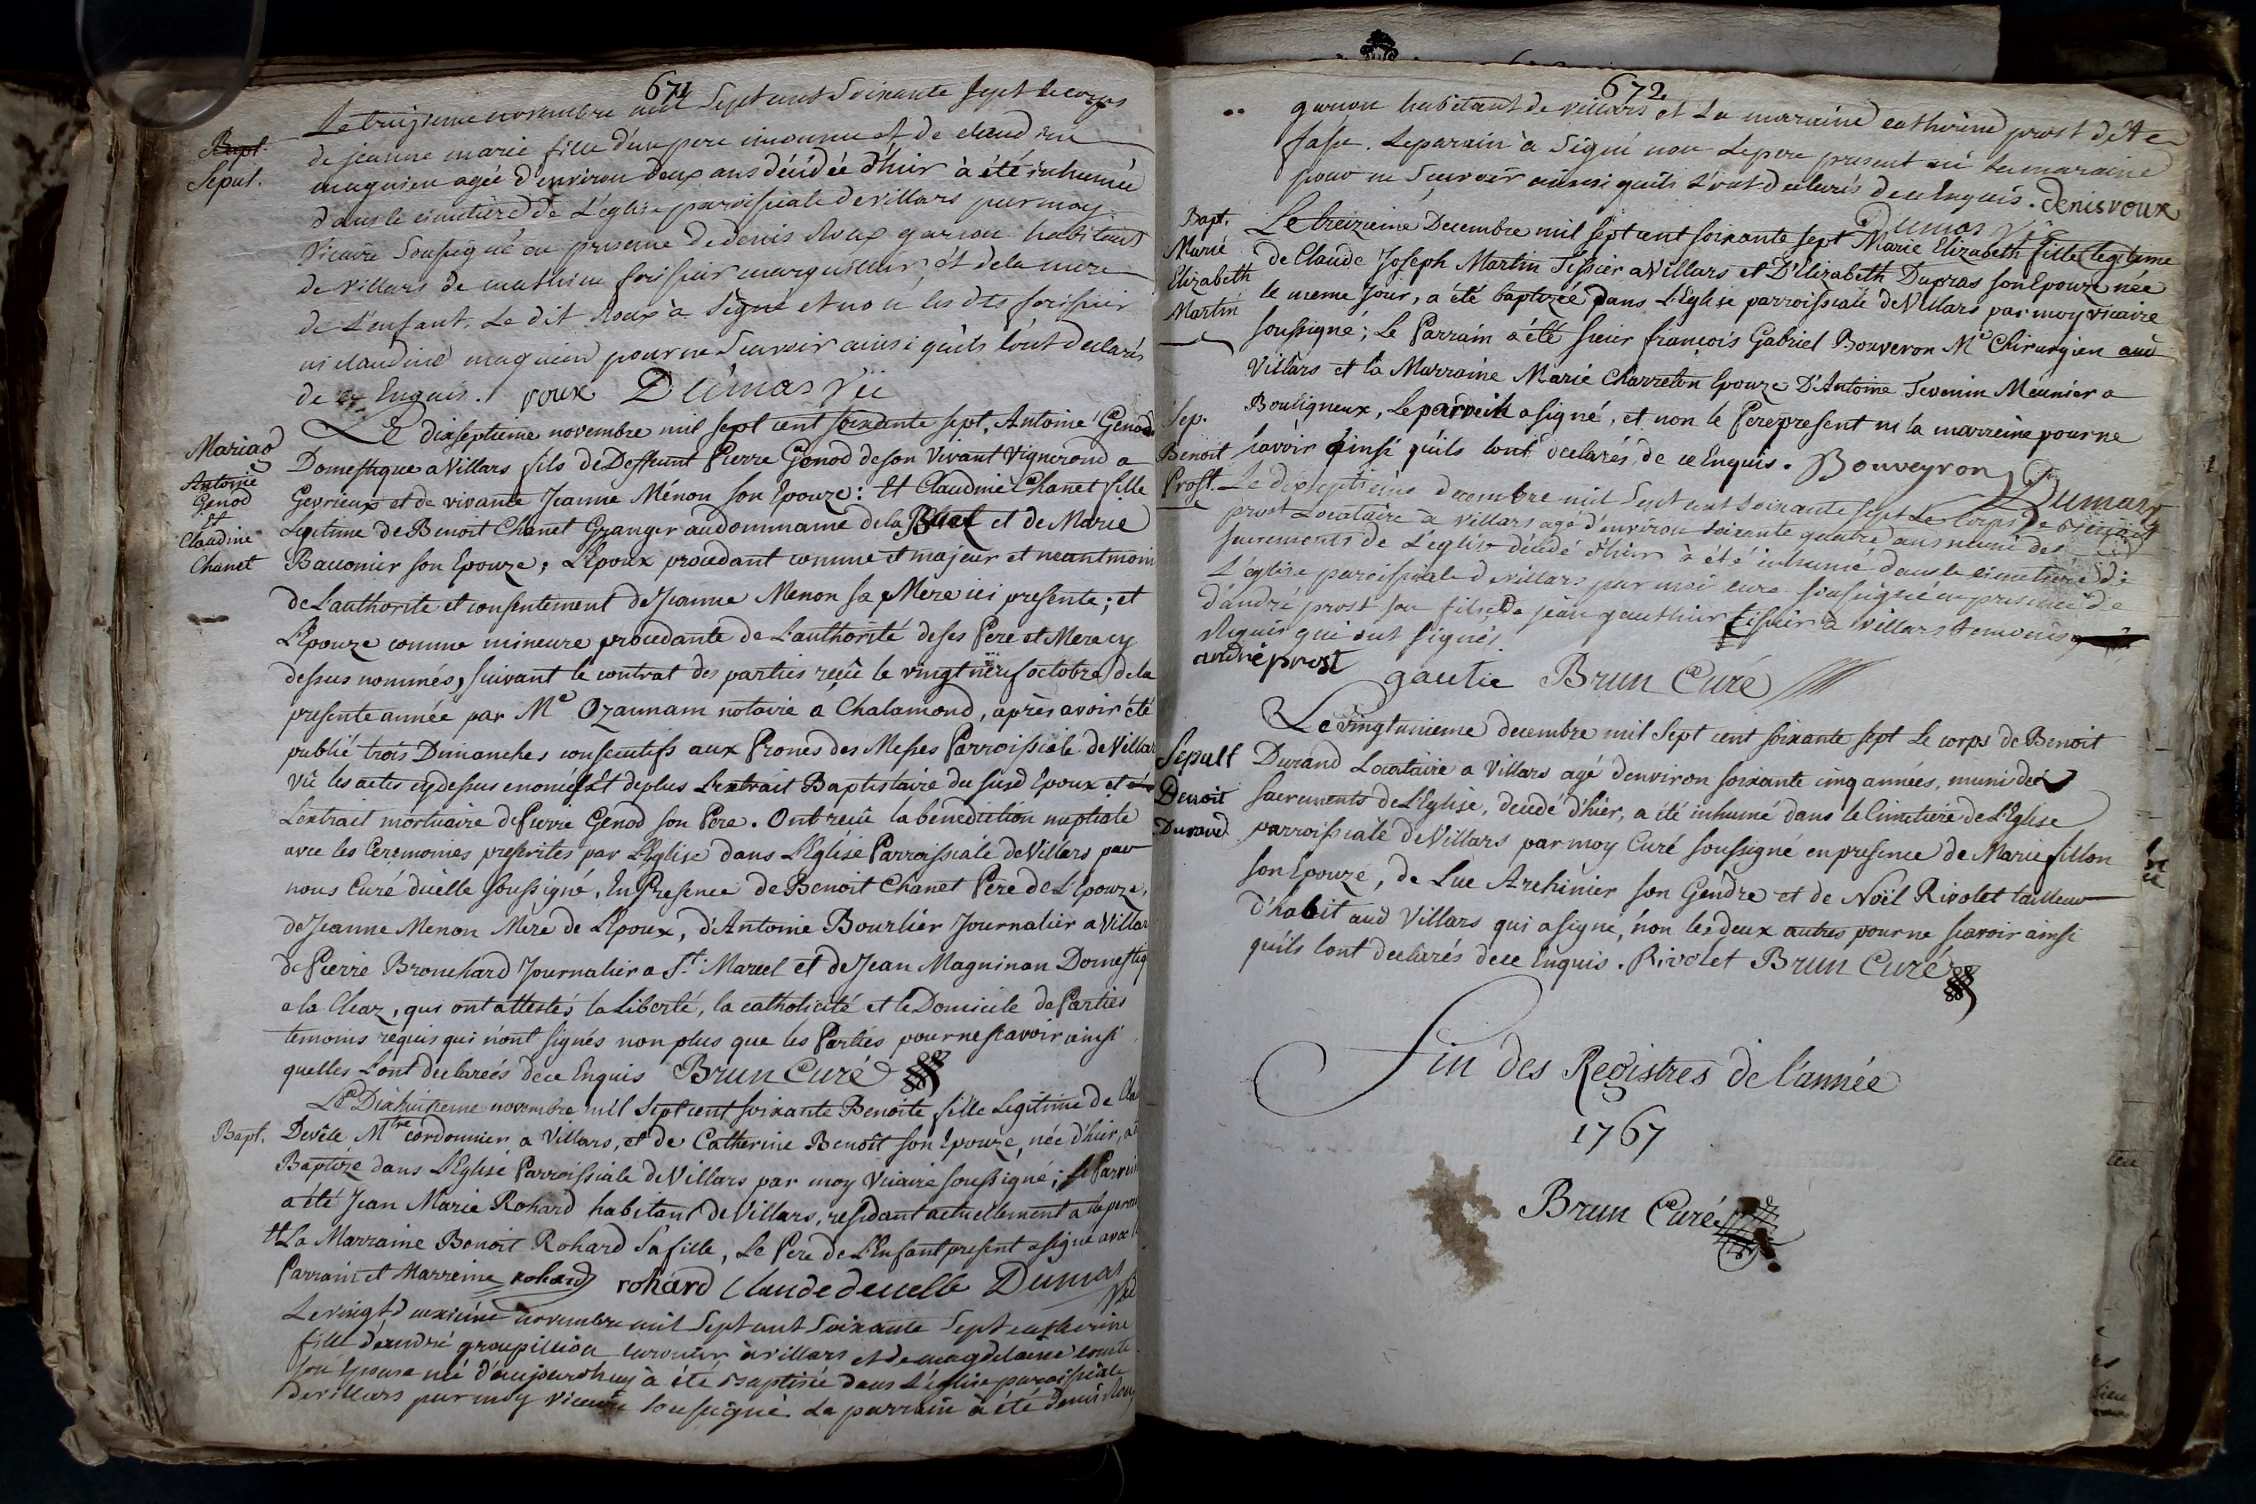 671
Le treizieme novembre mil Sept cent Soixante Sept le corps
Bapt.
Sepul.
de jeanne marie fille d'un pere inconnu et de claudine
magnien agée d'environ deux ans décédée d'hier à été inhumée
dans le cimetiere de L'eglise paroissiale de villars par moy
Vicaire Soussigné en presence de denis Roux garcon habitant
de villars de mathieu foissier marguillier, et de la mere
de L'enfant. Le dit Roux à Signé et no n les dts foissier
ni claudine magnien pour ne Scavoir ainsi qu'ils l'ont declarés
de ce Enquis. roux Dumas Vic
Mariag
Antoine
Genod
Et
Claudine
Chanet
Le dixseptieme novembre mil sept cent soixante sept, Antoine Genod
Domestique a Villars fils de Deffeunt Pierre Genod de son Vivant Vigneron a
Gevrieux et de vivante Jeanne Ménon son Epouze: Et Claudine Chanet fille
Legitime de Benoit Chanet Granger au dommaine de la et de Marie
Baccomier son Epouze, L'Epoux procedant comme et majeur et neantmoin
de L'authorite et consentement de Jeanne Menon sa Mere ici presente; et
L'Epouze comme mineure procedante de L'authorité de ses Pere et Mere cy
dessus nommés, suivant le contrat des parties reçû le vingt neuf octobre de la
presente année par Me Ozannam notaire a Chalamond, après avoir été
publié trois Dimanches consecutifs aux Prones des Messes Parroissiale de Villar
vû les actes cy dessus enoncés et de plus L'extrait Baptistaire du susd Epoux et
L'extrait mortuaire de Pierre Genod son Pere. Ont reçû la benediction nuptiale
avec les Ceremonies prescrites par L'Eglise dans L'Eglise Parroissiale de Villars par
nous Curé d'icelle soussigné, En Presence de Benoit Chanet Pere de L'Epouze,
de Jeanne Menon Mere de L'Epoux, d'Antoine Bourlier Journalier a Villar
de Pierre Brouchard Journalier a St. Marcel et de Jean Magninan Domestiq
a la Chaz, qui ont attestés la Liberté, la catholicité et le Domicile de Parties
temoins requis qui n'ont signés non plus que les Parties pour ne scavoir ainsi
quelles L'ont declareés de ce Enquis Brun Curé
Le Dixhuitieme novembre mil sept cent soixante Benoite fille Legitime de Cla
Bapt.
Devêle Mtre cordonnier a Villars, et de Catherine Benoît son Epouze, née d'hier, a
Baptize dans L'Eglise Parroissiale de Villars par moy Vicaire soussigné; le Parrein
a été Jean Marie Rohard habitant de Villars, residant actuellement a
Et La Marraine Benoit Rohard sa fille, Le Pere de L'Enfant present a signé avec l
Parrain et Marreine rohard rohard Claude develle Dumas Vic
Le vingt deuxieme novembre mil Sept cent Soixante Sept catherine
fille d'andré groupillion à villars et de magdelaine
son Epouse née d'aujourdhuy à été Baptisée dans L'église paroissiale
de villars par moy Vicaire Soussigné Le parrain à été denis Roux
672
garcon habitant de villars et La marraine catherine prost
Le parain à Signé non Le pere present ni La maraine
pour ne Scavoir ainsi qu'ils L'ont declarés de ce Enquis. denis roux
Dumas Vic
Bapt.
Marie
Elizabeth
Martin
Le treizieme Decembre mil sept cent soixante sept Marie Elizabeth fille legitime
de Claude Joseph Martin Tissier a Villars et D'Elizabeth Dupras son Epouze née
le meme Jour, a été baptizée dans L'Eglise parroissiale de Villars par moy vicaire
soussigné; Le Parrain a été sieur françois Gabriel Bouveron Me Chirurgien aud
Villars et la Marraine Marie Charreton Epouze D'Antoine Tevenin Meunier a
Bouligneux, Le parrein a signé, et non le Pere present ni la marreine pour ne
savoir ainsi qu'ils lont declarés de ce Enquis. Bouveyron Dumas
Sep.
Benoit
Prost.
Le dixseptieme decembre mil Sept cent Soixante Sept Le Corps de Benoit
prost Locataire a villars agé d'environ soixante quatre ans muni des
sacrements de L'eglise décédé d'hier à été inhumé dans le cimetiere de
L'église paroissiale de villars par moi curé soussigné en presence de
d'andré prost son fils, de jean gauthier tissier a villars temoins
Requis qui ont signés.
andré prost gautie Brun Curé
Sepult
Benoit
Durand
Le vingtunieme decembre mil sept cent soixante sept Le corps de Benoit
Durand Locataire a Villars agé d'environ soixante cinq années, muni des
sacrements de L'Eglise, decedé d'hier, a été inhumé dans le Cimetiere de L'Eglise
parroissiale de Villars par moy Curé soussigné en presence de Marie fillon
son Epouze, de Luc Archinier son Gendre et de Noël Rivolet tailleur
d'habit aud Villars qui a signe, non les deux autres pour ne scavoir ainsi
qu'ils lont declarés de ce Enquis. Rivolet Brun Curé
Fin des Registres de l'année
1767
Brun Curé